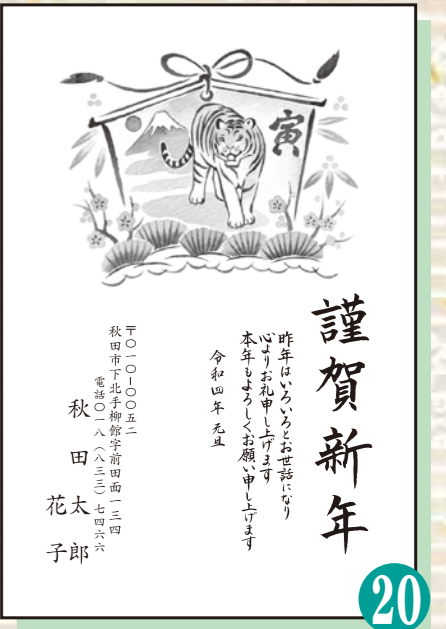 寅
謹賀新年
昨年はいろいろとお世話になり
心よりお礼申し上げます
本年もよろしくお願い申し上げます
令和四年 元旦
〒〇一〇―〇〇五二
秋田市下北手柳館字前田面一三四
電話〇一八(八三三)七四六六
秋田太郎
花子
20